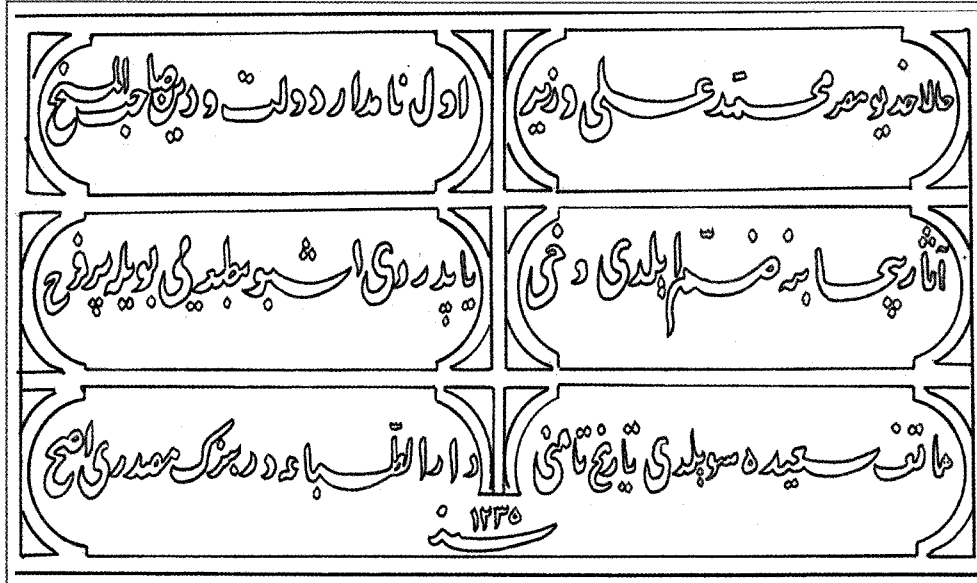 حالا خديو مصر محمد علی وزير
اول نامدار دولت ودين صاحب المنح
آثار بيحسابنه ضم ايلدی دخی
ياپدردی اشبو مطبعه‌يی بويله پر فرح
هاتف سعيده سويلدی تاريخ تامنی
دار الطباعه در هنرك مصدری اصح
سنه ١٢٣٥